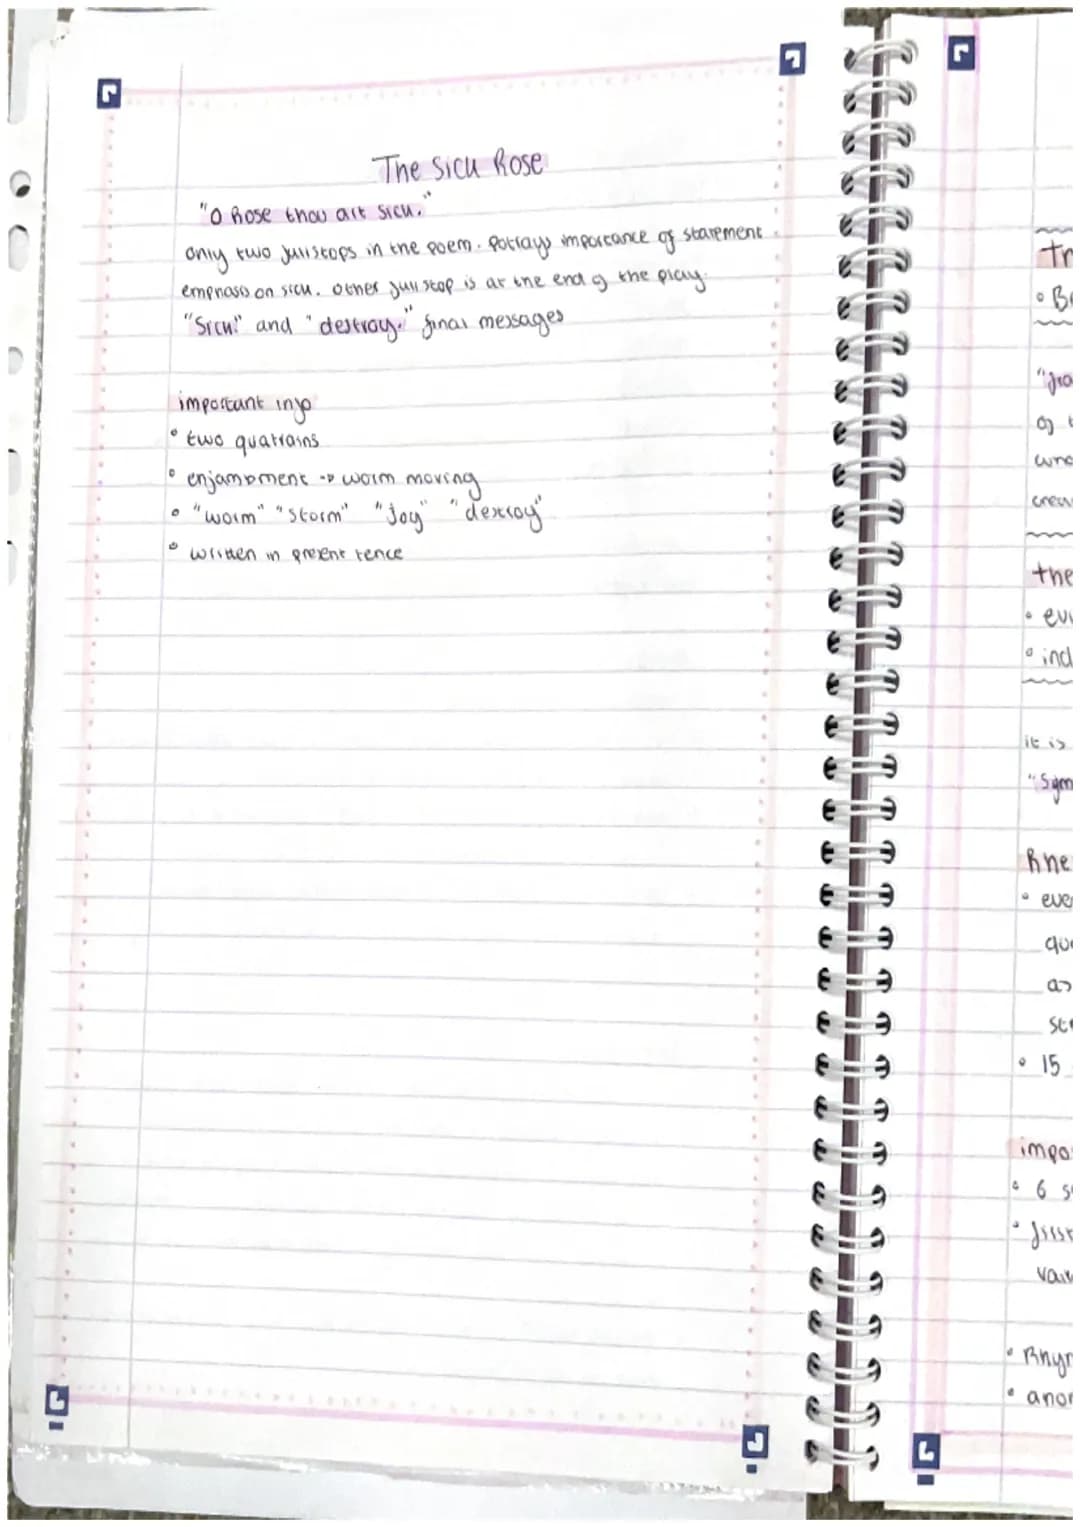 The Sick Rose
"O Rose thou art sick."
only two fullstops in the poem. Potrays importance of statement
emphasis on sick. Other full stop is at the end of the play.
"Sick." and "destroy." final messages
important info
• two quatrains
• enjambment -> worm moving
• "worm" "storm" "Joy" "destroy"
• written in present tence
Tr
• Be
"fro
of t
the
• ev
• ind
it is
"Sym
Rhe
• ever
que
as
• 15
impo
• 6 s
• first
• Rhyr
• anor